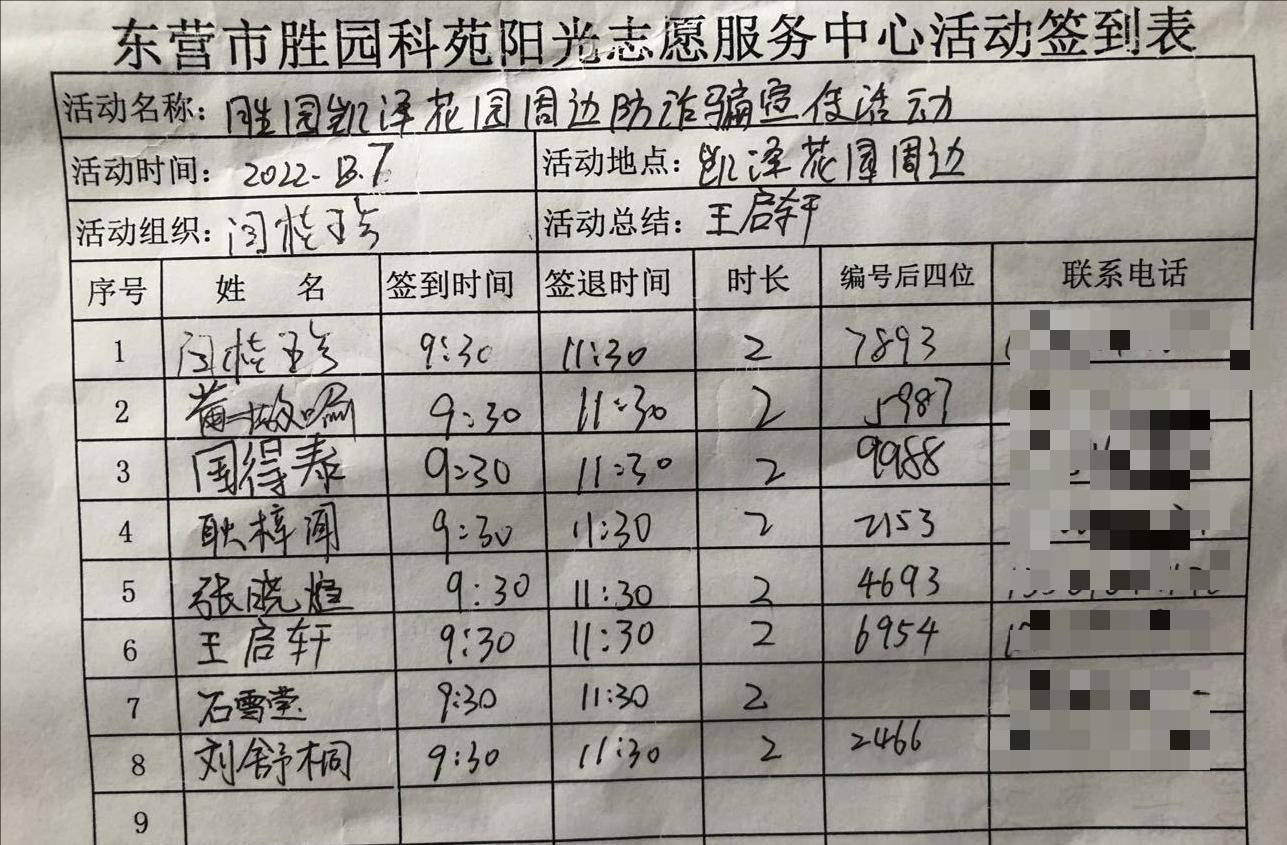 东营市胜园科苑阳光志愿服务中心活动签到表
活动名称：胜园凯泽花园周边防诈骗宣传活动
活动时间：2022.13.7 活动地点：凯泽花园周边
活动组织：闫桂珍 活动总结：王启轩
序号 姓 名 签到时间 签退时间 时长 编号后四位 联系电话
1 闫桂珍 9:30 11:30 2 7893
2 黄 9:30 11:30 2 5987
3 国得泰 9:30 11:30 2 9988
4 耿梓闻 9:30 11:30 2 2153
5 张晓煊 9:30 11:30 2 4693
6 王启轩 9:30 11:30 2 6954
7 石雪莹 9:30 11:30 2
8 刘舒桐 9:30 11:30 2 2466
9